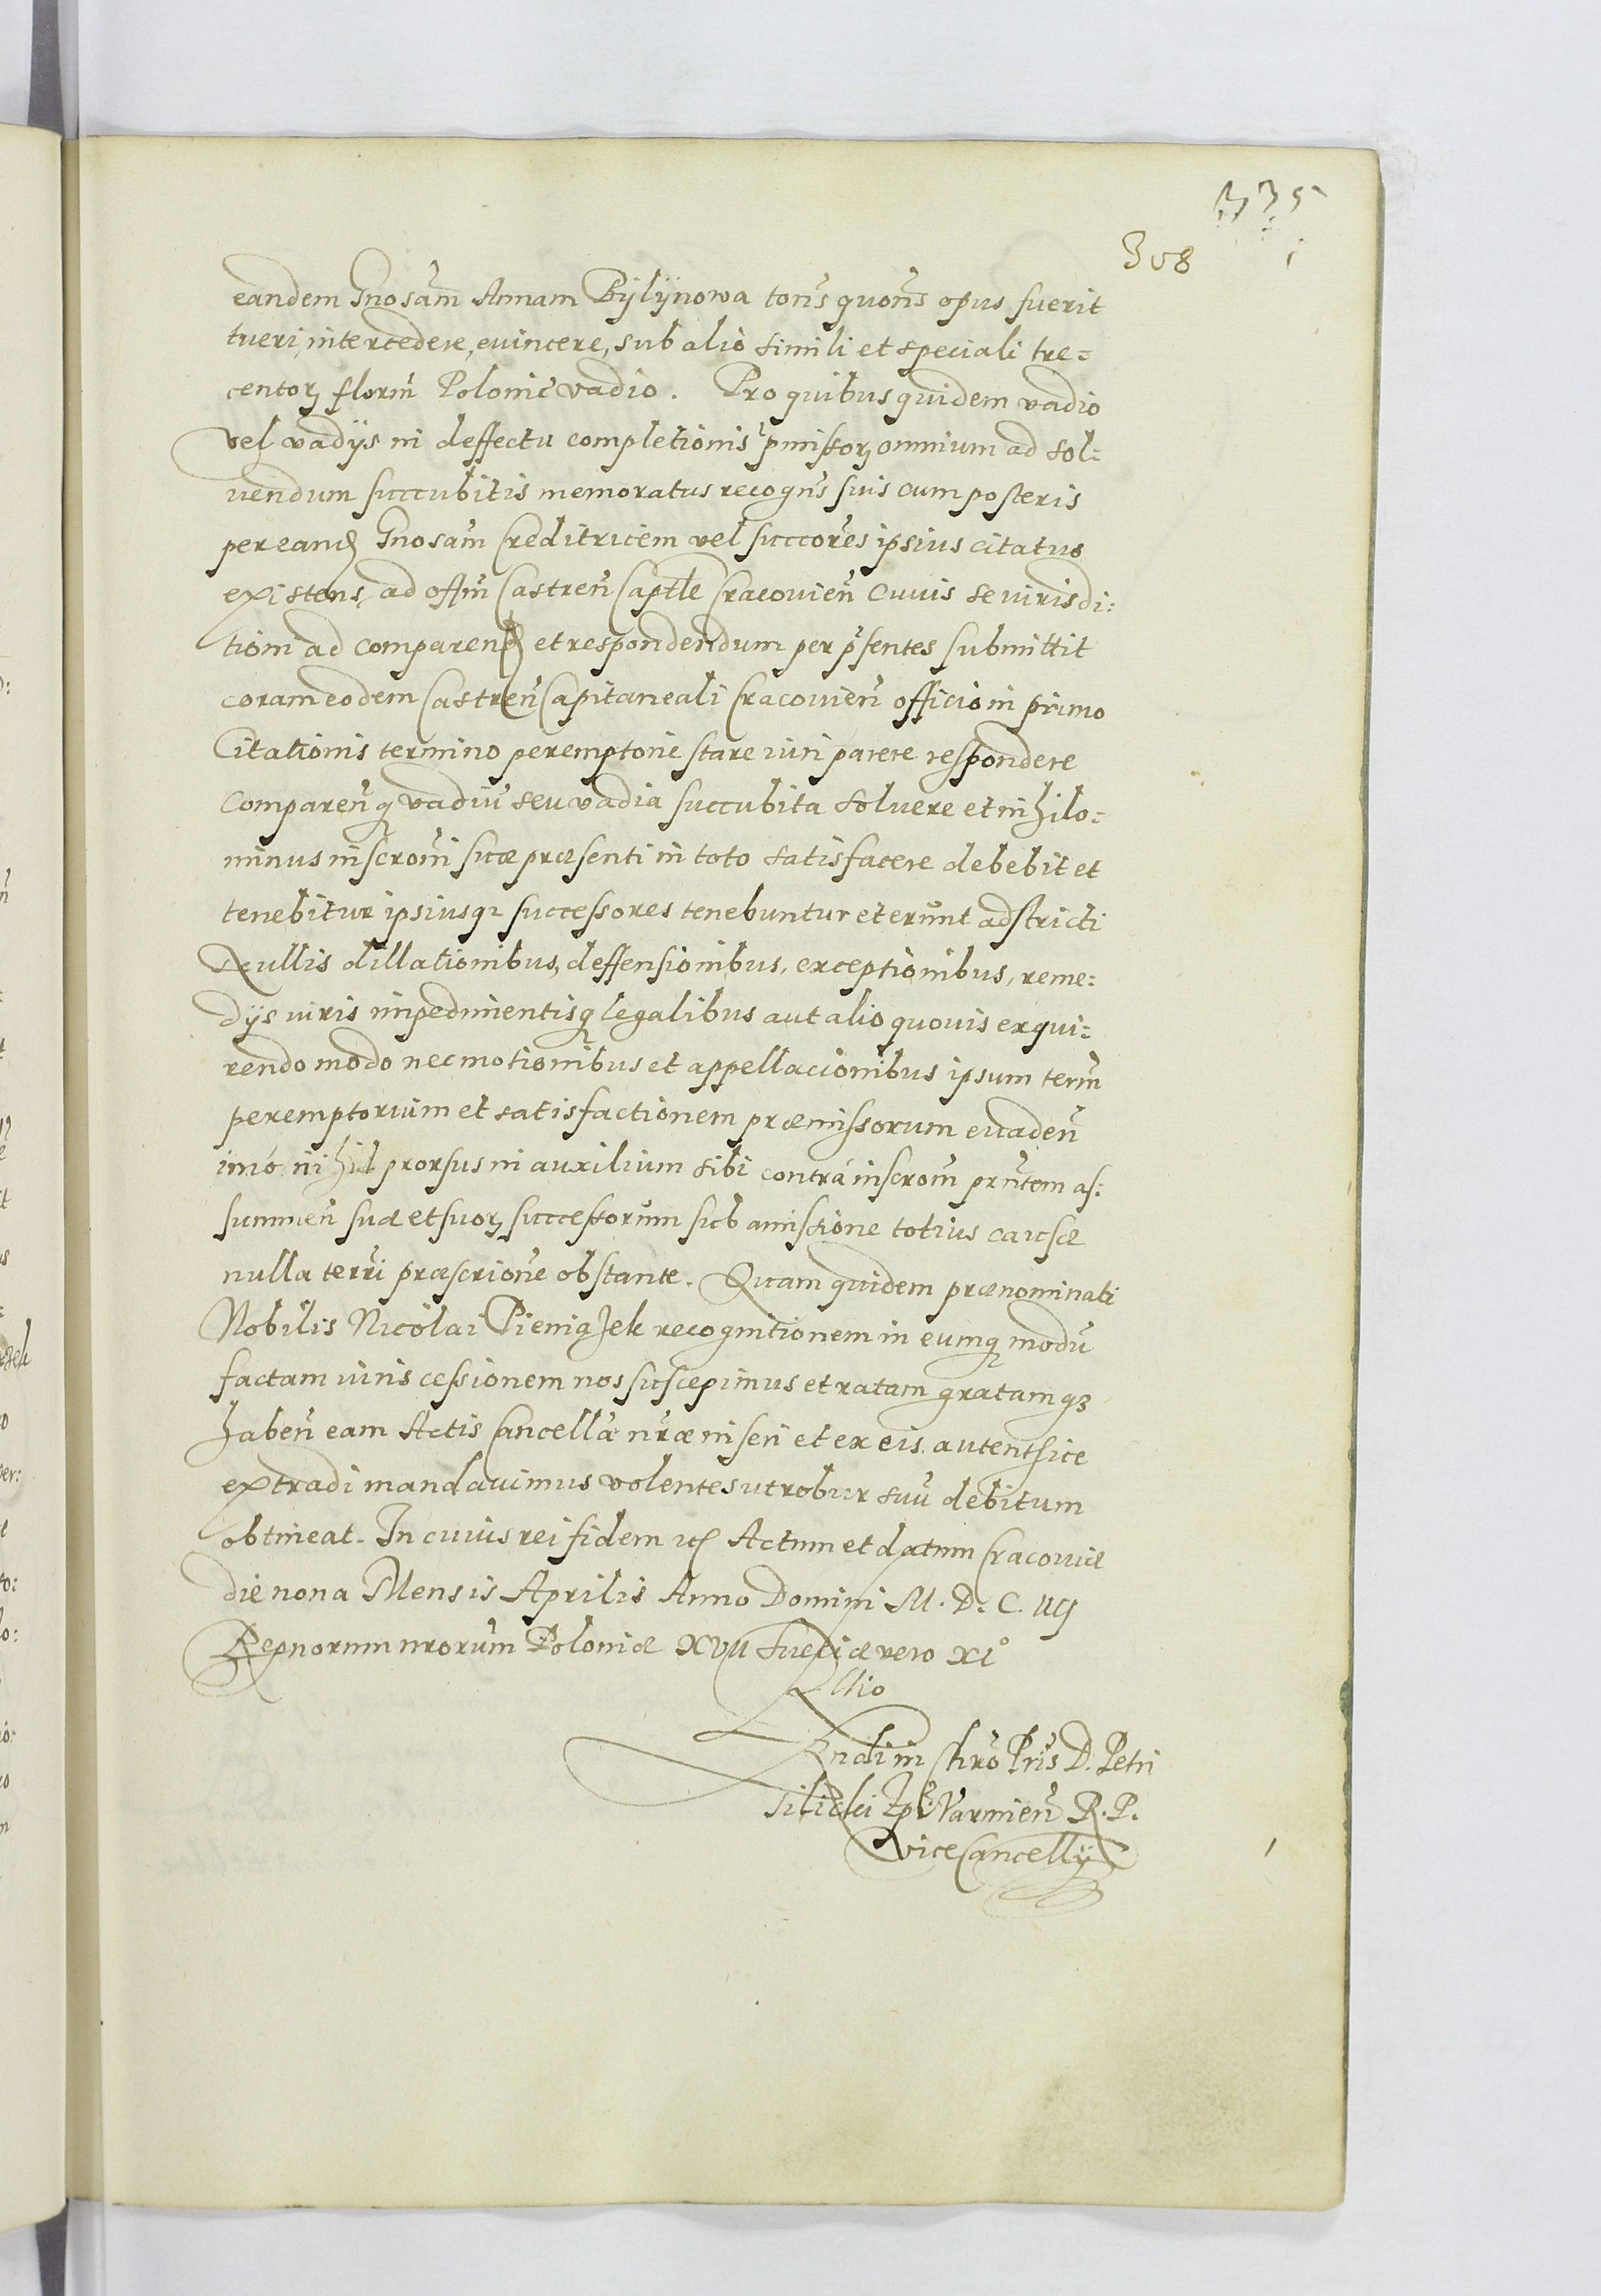 335
308
eandem Gnosam̃ Annam Bylÿnowa tons̃ quons̃ opus fuerit
tueri, intercedere, euincere, sub alio simili et speciali tre=
centorꝫ florin̄ Polonic̃ vadio. Pro quibus quidem vadio
vel vadijs in deffectu completionis p̃missorꝫ omnium ad sol=
uendum succubitis memoratus recogns̃ suis cum posteris
per eand Gnosam̃ Creditricem vel succores̃ ipsius citatus
existens, ad offm̃ Castren̄ Captle Cracouien̄ cuius se iurisdi:
tioni ad comparend et respondendum per p̃sentes submittit
coram eodem Castren̄ Capitaneali Cracouien̄ officio in primo
Citationis termino peremptorie stare iuri parere respondere
comparen̄q vadiū seu vadia succubita soluere et nihilo=
minus inscroni̇̃ suæ præsenti in toto satisfacere debebit et
tenebitur ipsiusqꝫ successores tenebuntur et erunt adstricti
Nullis dillationibus, deffensionibus, exceptionibus, reme:
dijs iuris impedimentisqꝫ legalibus aut alio quouis exqui:
rendo modo nec motionibus et appellacionibus ipsum term̄
peremptorium et satisfactionem præmissorum euaden̄
imò nihil prorsus in auxilium sibi contrà inscrom̃ prñtem as:
summen̄ suæ et suorꝫ successorum sub amissione totius causæ
nulla terri̇̃ præscrionē obstante. Quam quidem prænominati
Nobilis Nicolai Pieniąʒek recognitionem in eumqꝫ modū
factam iuris cessionem nos suscepimus et ratam gratamqꝫ
haben̄ eam Actis Cancellæ nr̃æ inseri et ex eis autenthice
extradi mandauimus volentes ut robur suū debitum
obtineat. In cuius rei fidem ꝛc Actum et datum Cracouiæ
die nona Mensis Aprilis Anno Domini M. D. C. IIIJ
Regnorum nrorum Poloniæ XVII Sueciæ vero XI°
Rllio
Rndi in Chrō Pris̃ D. Petri
Tilicki Epĩ Varmien̄ R. P.
ViceCancellÿ